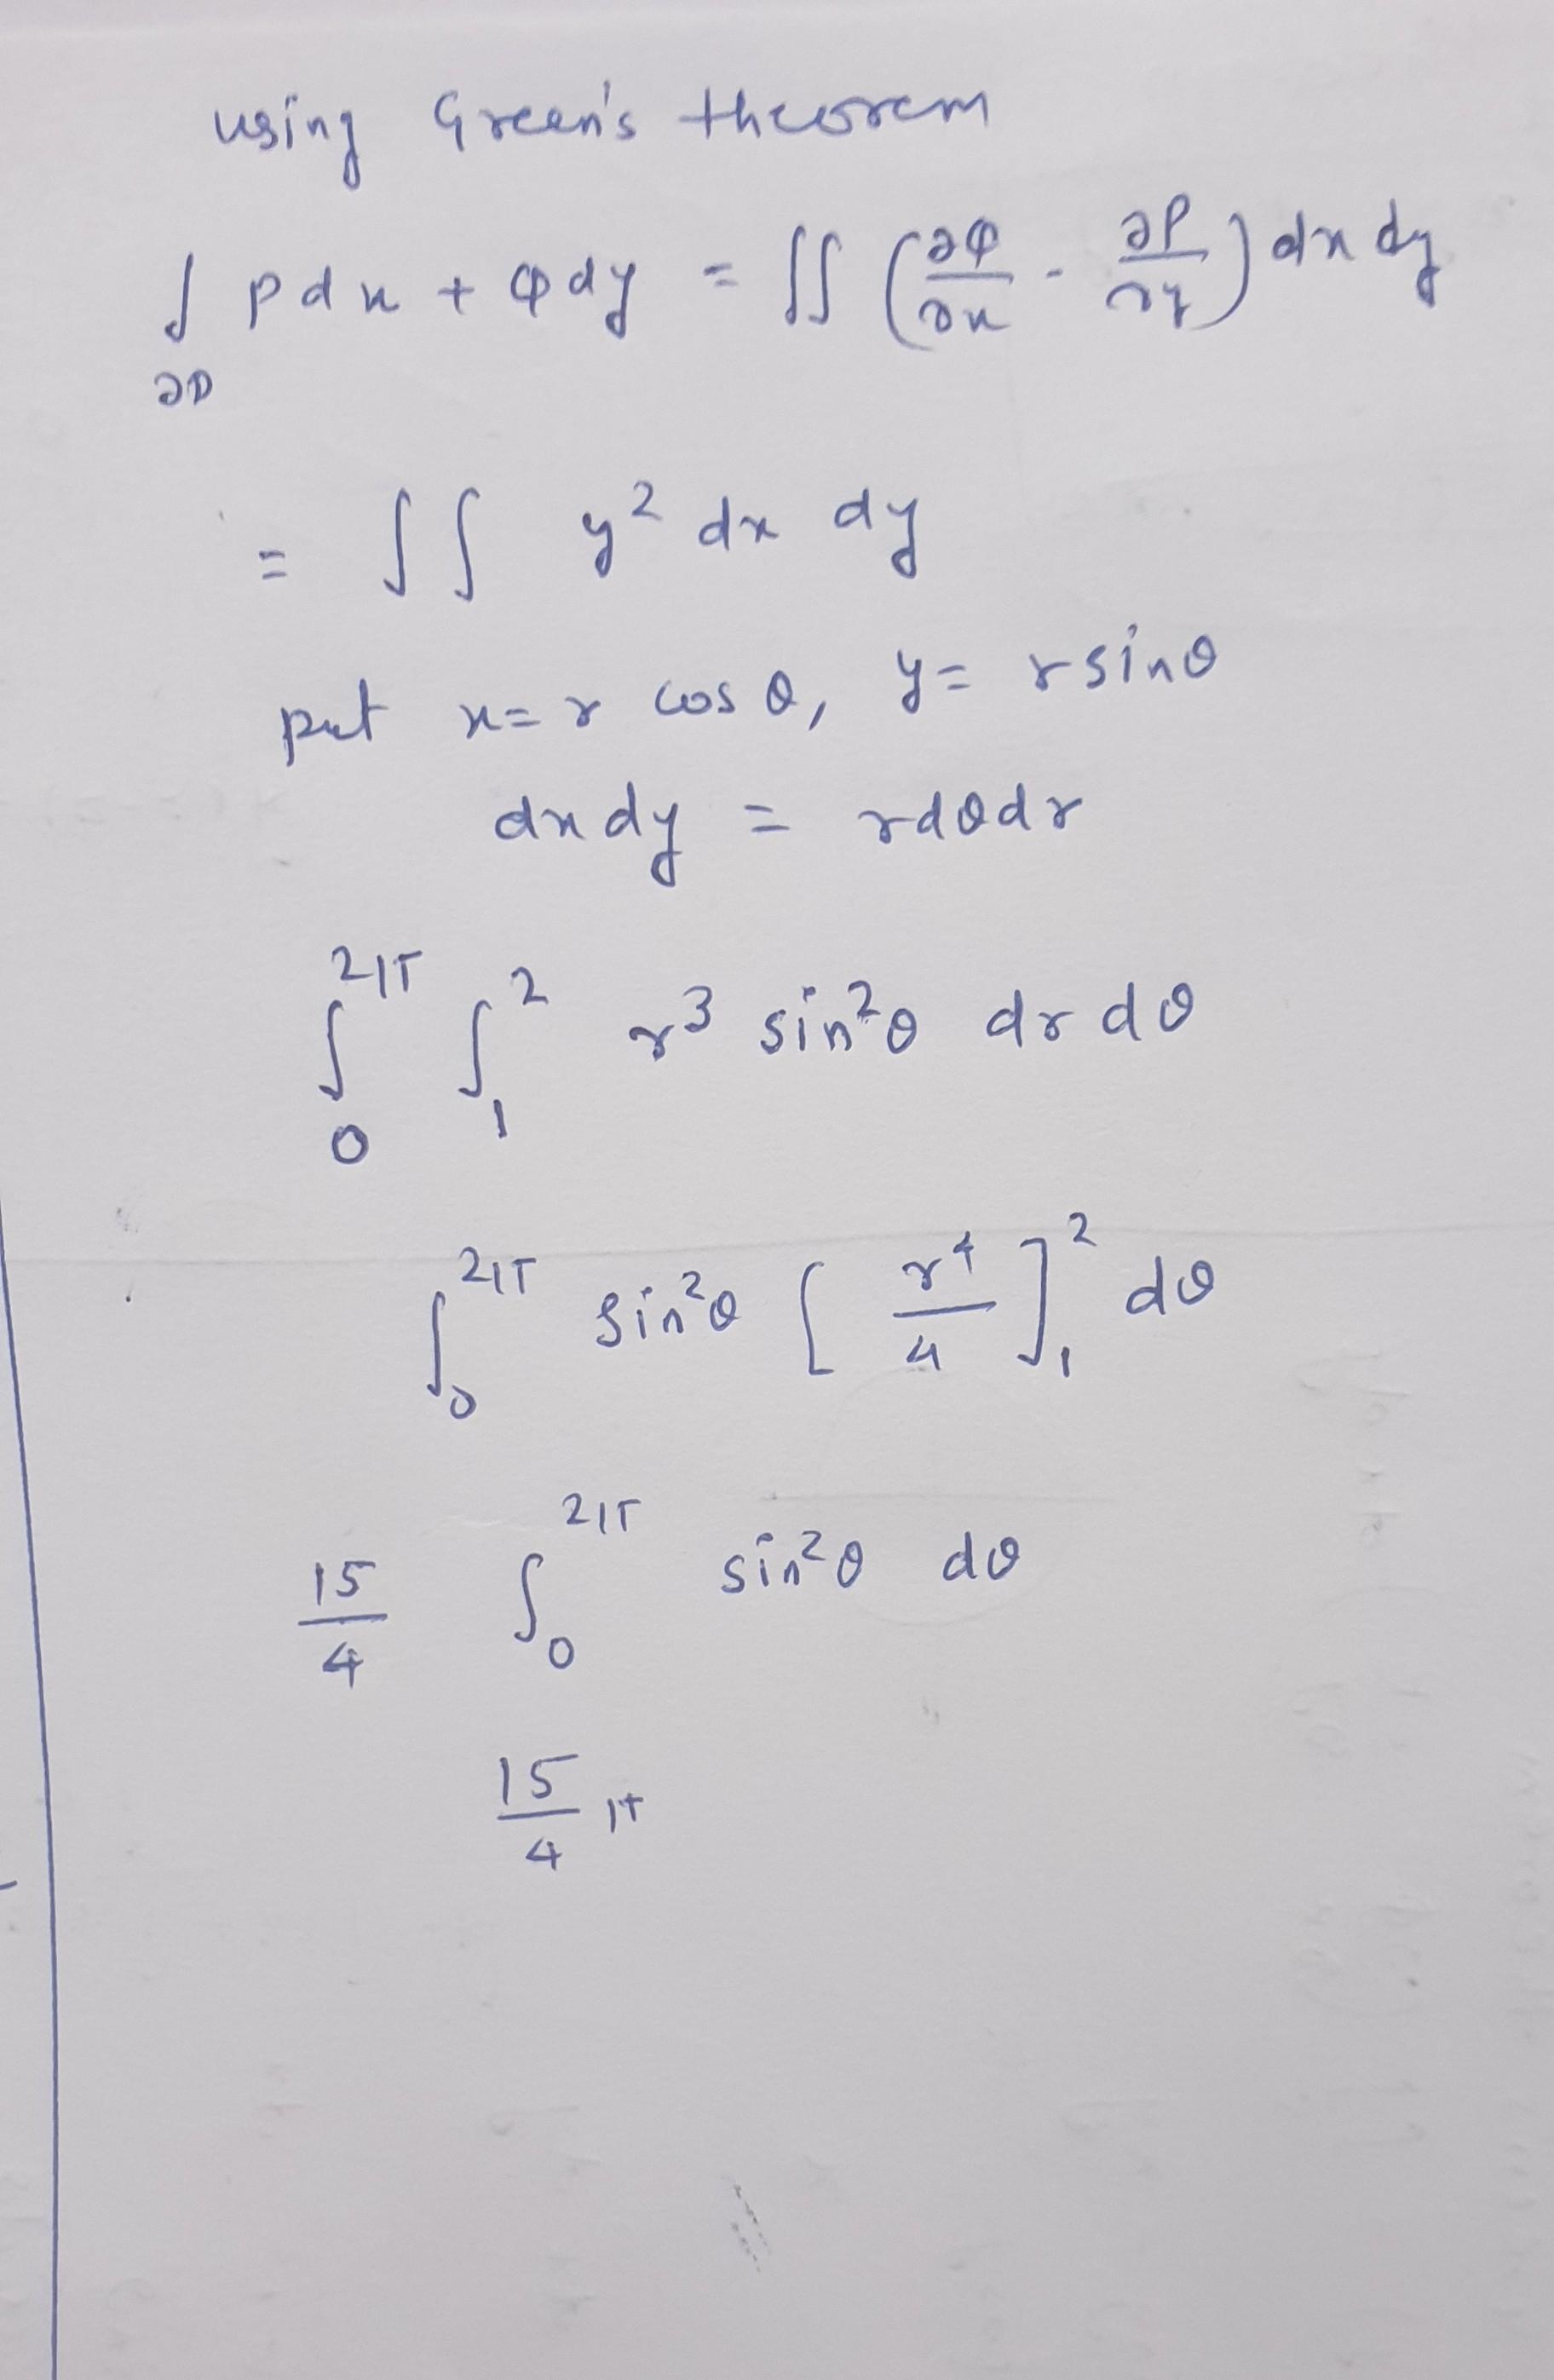 using Green's theorem
∫_{∂D} P dx + Q dy = ∫∫ (∂Q/∂x - ∂P/∂y) dx dy
= ∫∫ y² dx dy
put x = r cos θ, y = r sin θ
dx dy = r dθ dr
∫_0^{2π} ∫_1^2 r³ sin²θ dr dθ
∫_0^{2π} sin²θ [r⁴/4]_1^2 dθ
15/4 ∫_0^{2π} sin²θ dθ
15/4 π